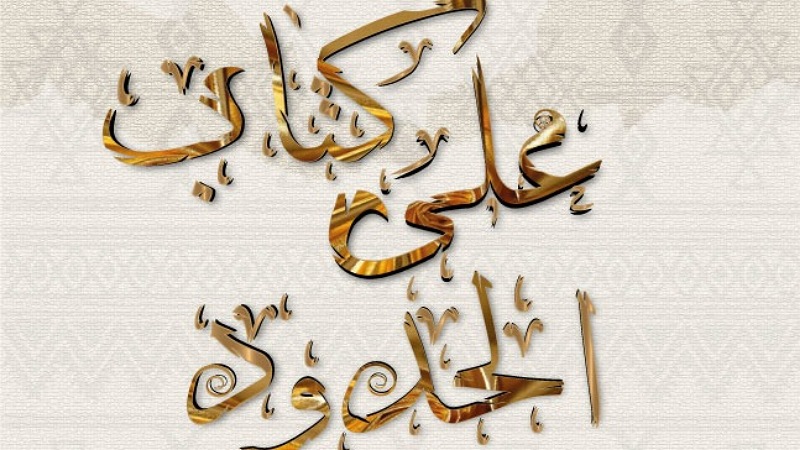 على كتاب
الحدود